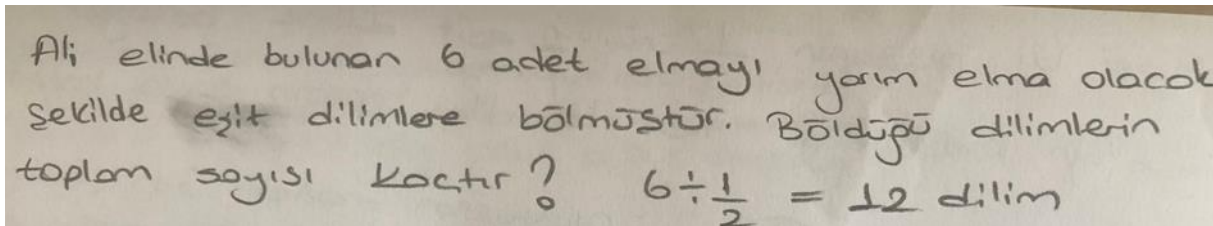 Ali elinde bulunan 6 adet elmayı yarım elma olacak
şekilde eşit dilimlere bölmüştür. Böldüğü dilimlerin
toplam sayısı kaçtır? 6 ÷ 1/2 = 12 dilim